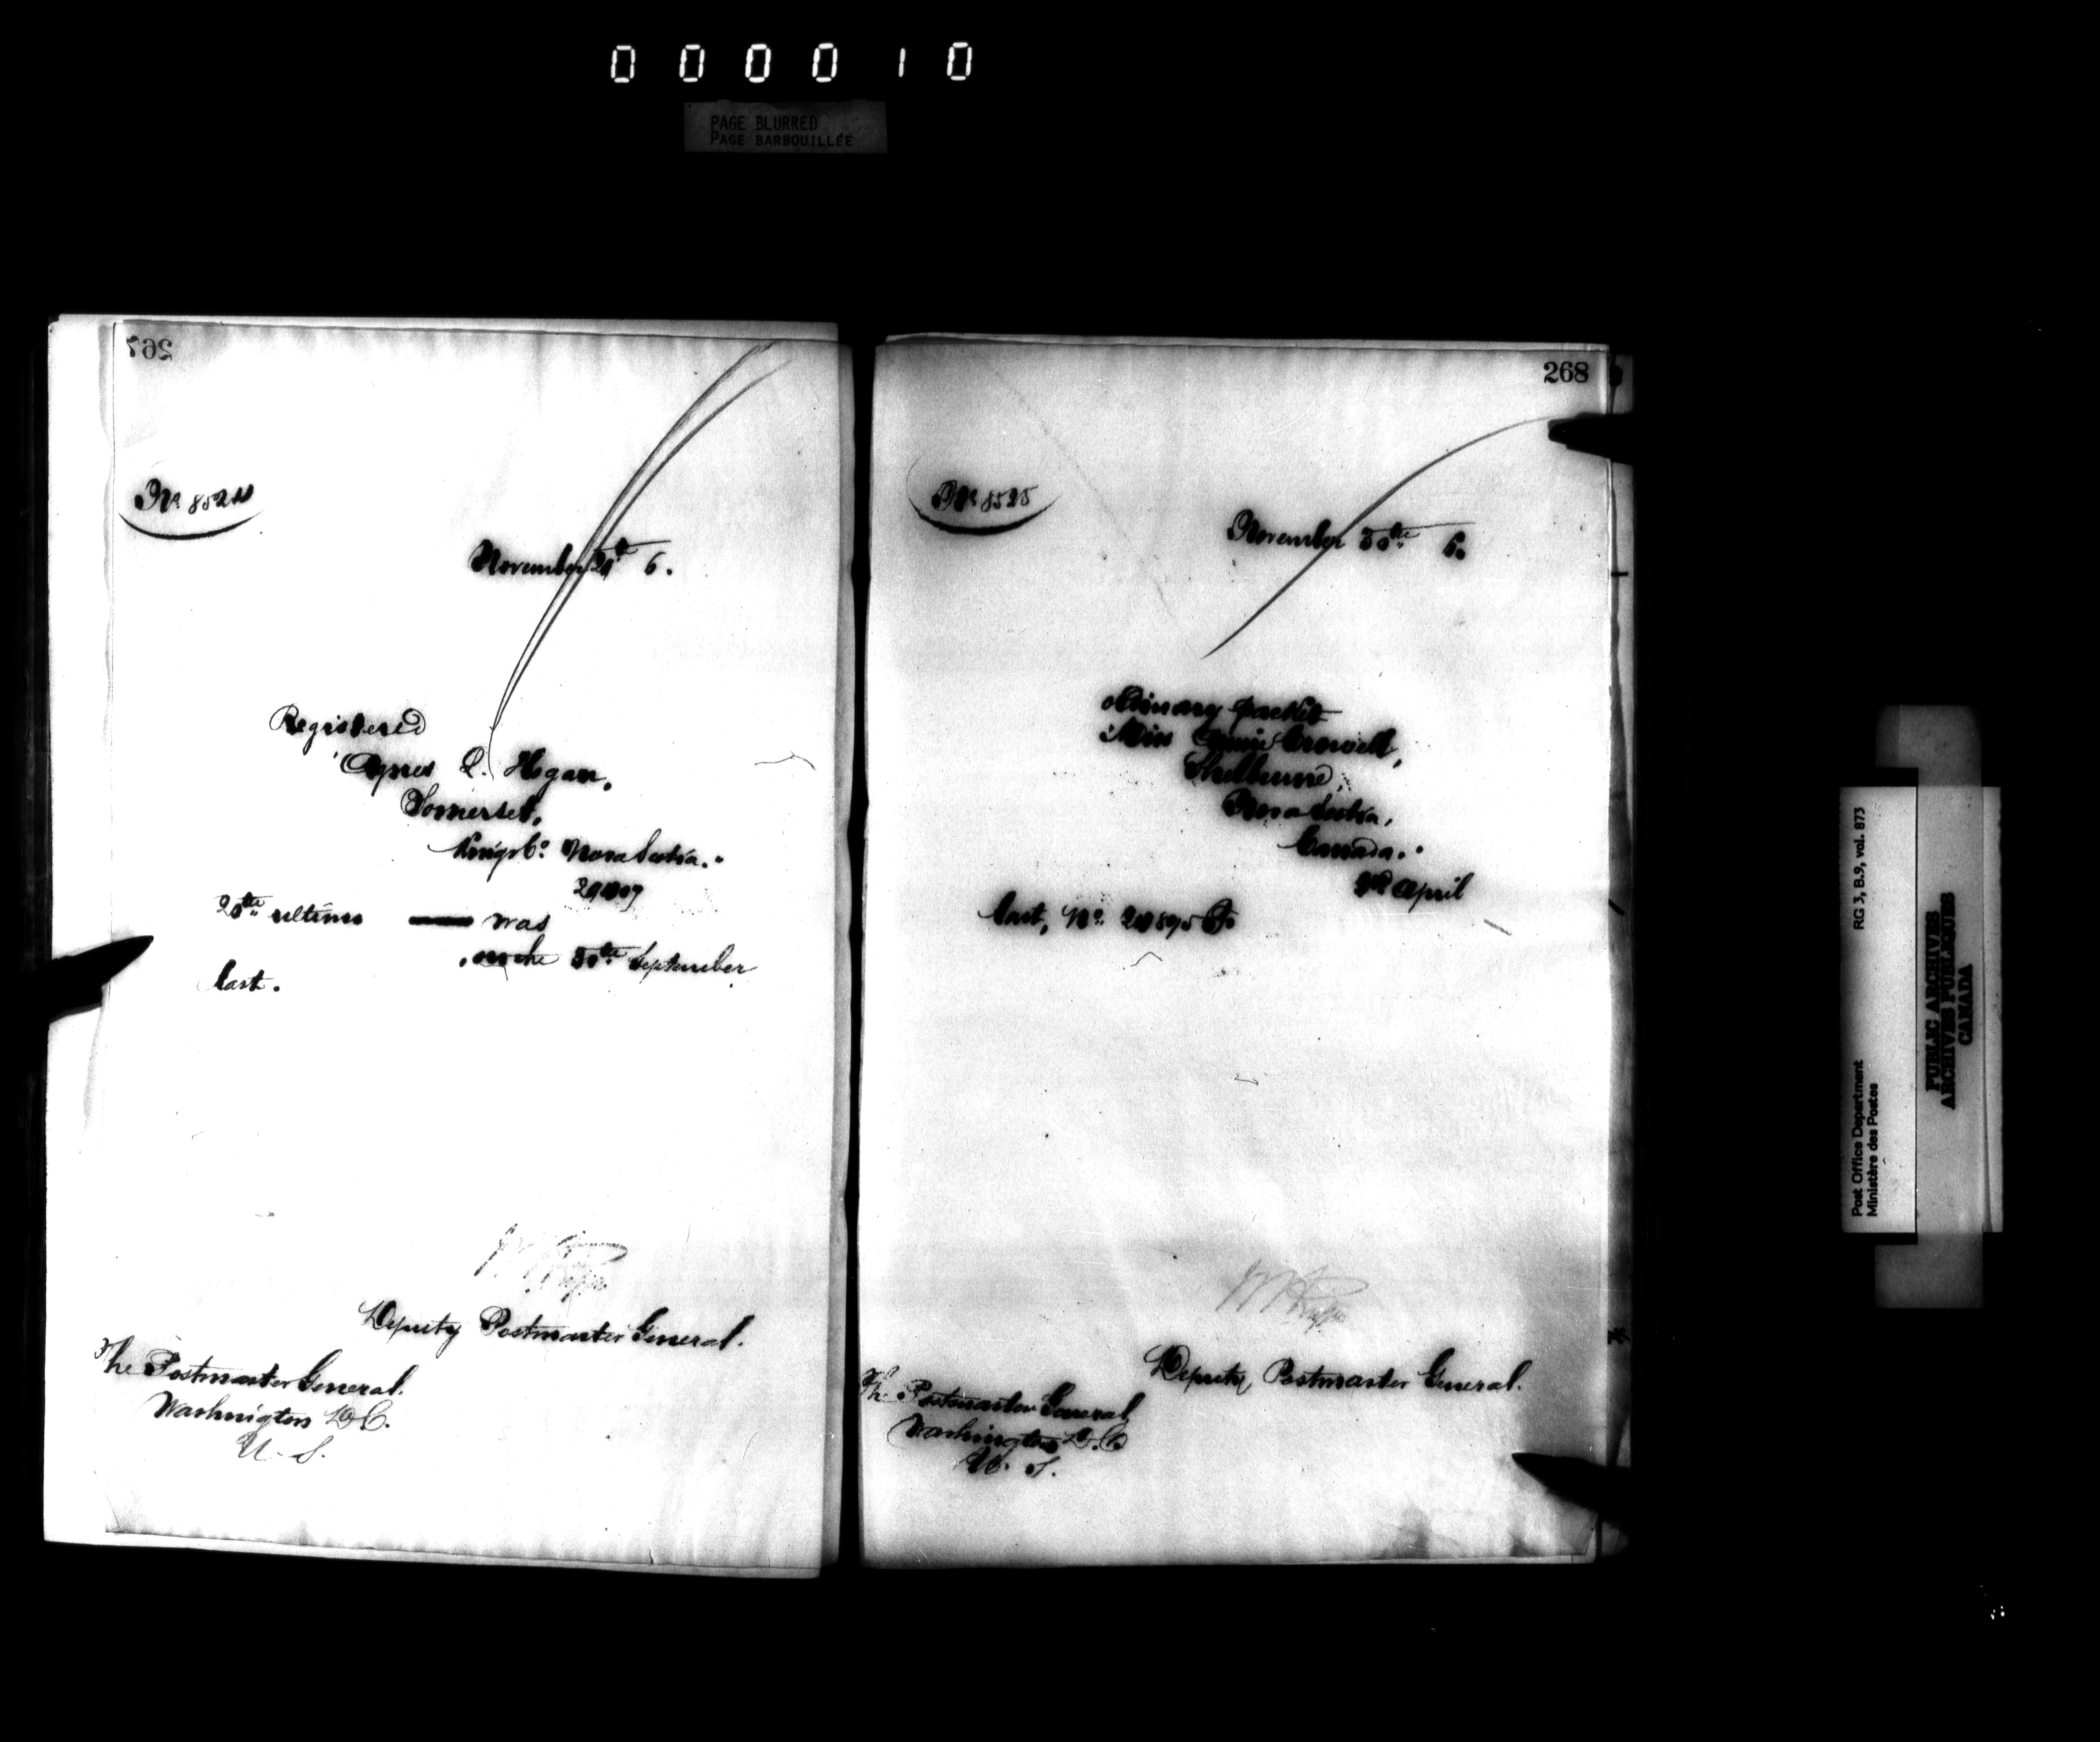 000010
PAGE BLURRED
PAGE BARBOUILLÉE
267
No. 8524
November 29th 6.
Registered
Agnes L. Hogan,
Somerset,
Kings Co. Nova Scotia."
20th ultimo was
, on the 30th September
last.
Deputy Postmaster General.
The Postmaster General.
Washington D.C.
U. S.
268
No. 8525
November 30th 6.
Ordinary packet
Miss Crowell,
Shelburne,
Nova Scotia,
Canada."
April
last, No.
Deputy Postmaster General.
The Postmaster General
Washington D.C.
U. S.
Post Office Department
Ministère des Postes
RG 3, B.9, vol. 873
PUBLIC ARCHIVES
ARCHIVES PUBLIQUES
CANADA